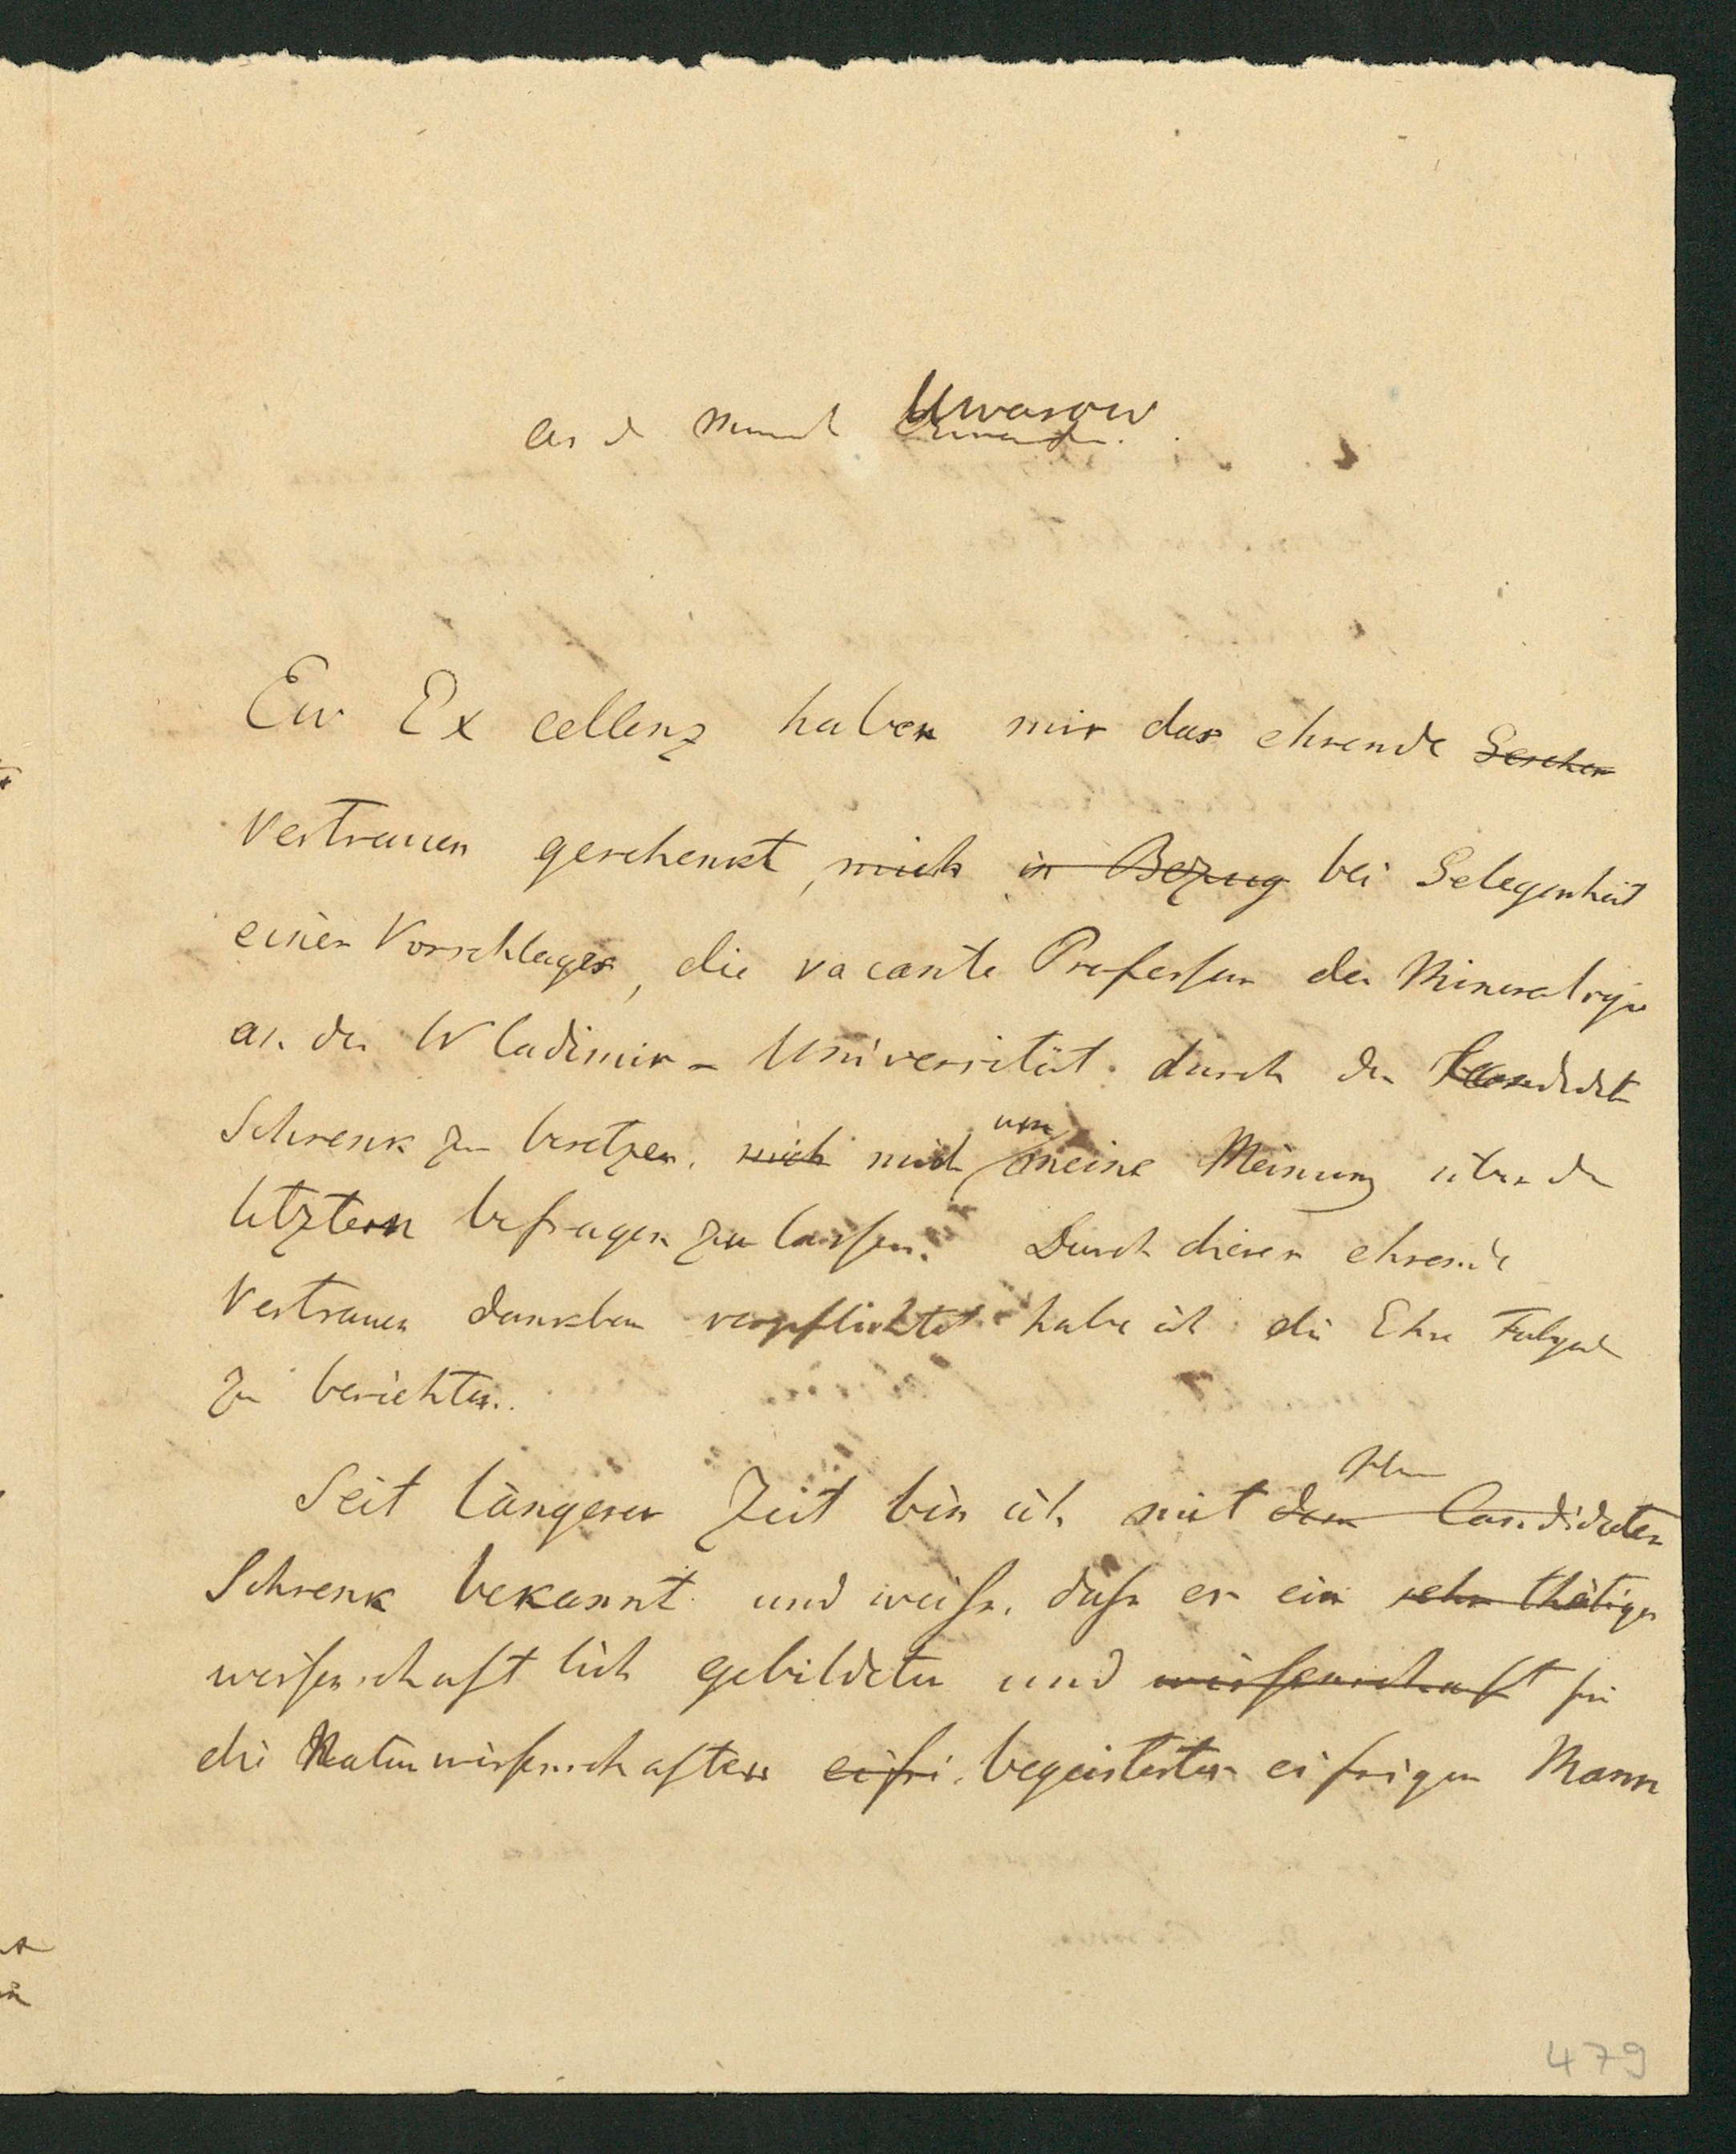 an d Minist Uwarow
Ew Excellenz haben mir das ehrende
Vertrauen geschenkt, mich in Bezug bei Gelegenheit
eines Vorschlages, die vacante Professur der Mineralogie
an der Wladimir-Universität durch den Kandidaten
Schrenk zu besetzen. mich mich um meine Meinung über d
letztern befragen zu lassen. Durch dieses ehrende
Vertrauen dankbar verpflichtet habe ich die Ehre Folgend
zu berichten.
Seit längerer Zeit bin ich mit dem Candidaten
Schrenk bekannt und weiss, dass er ein sehr thätiger
wissenschaftlich gebildeter und wissenschaft für
die Naturwissenschaften eifri begeisterter eifriger Mann
479